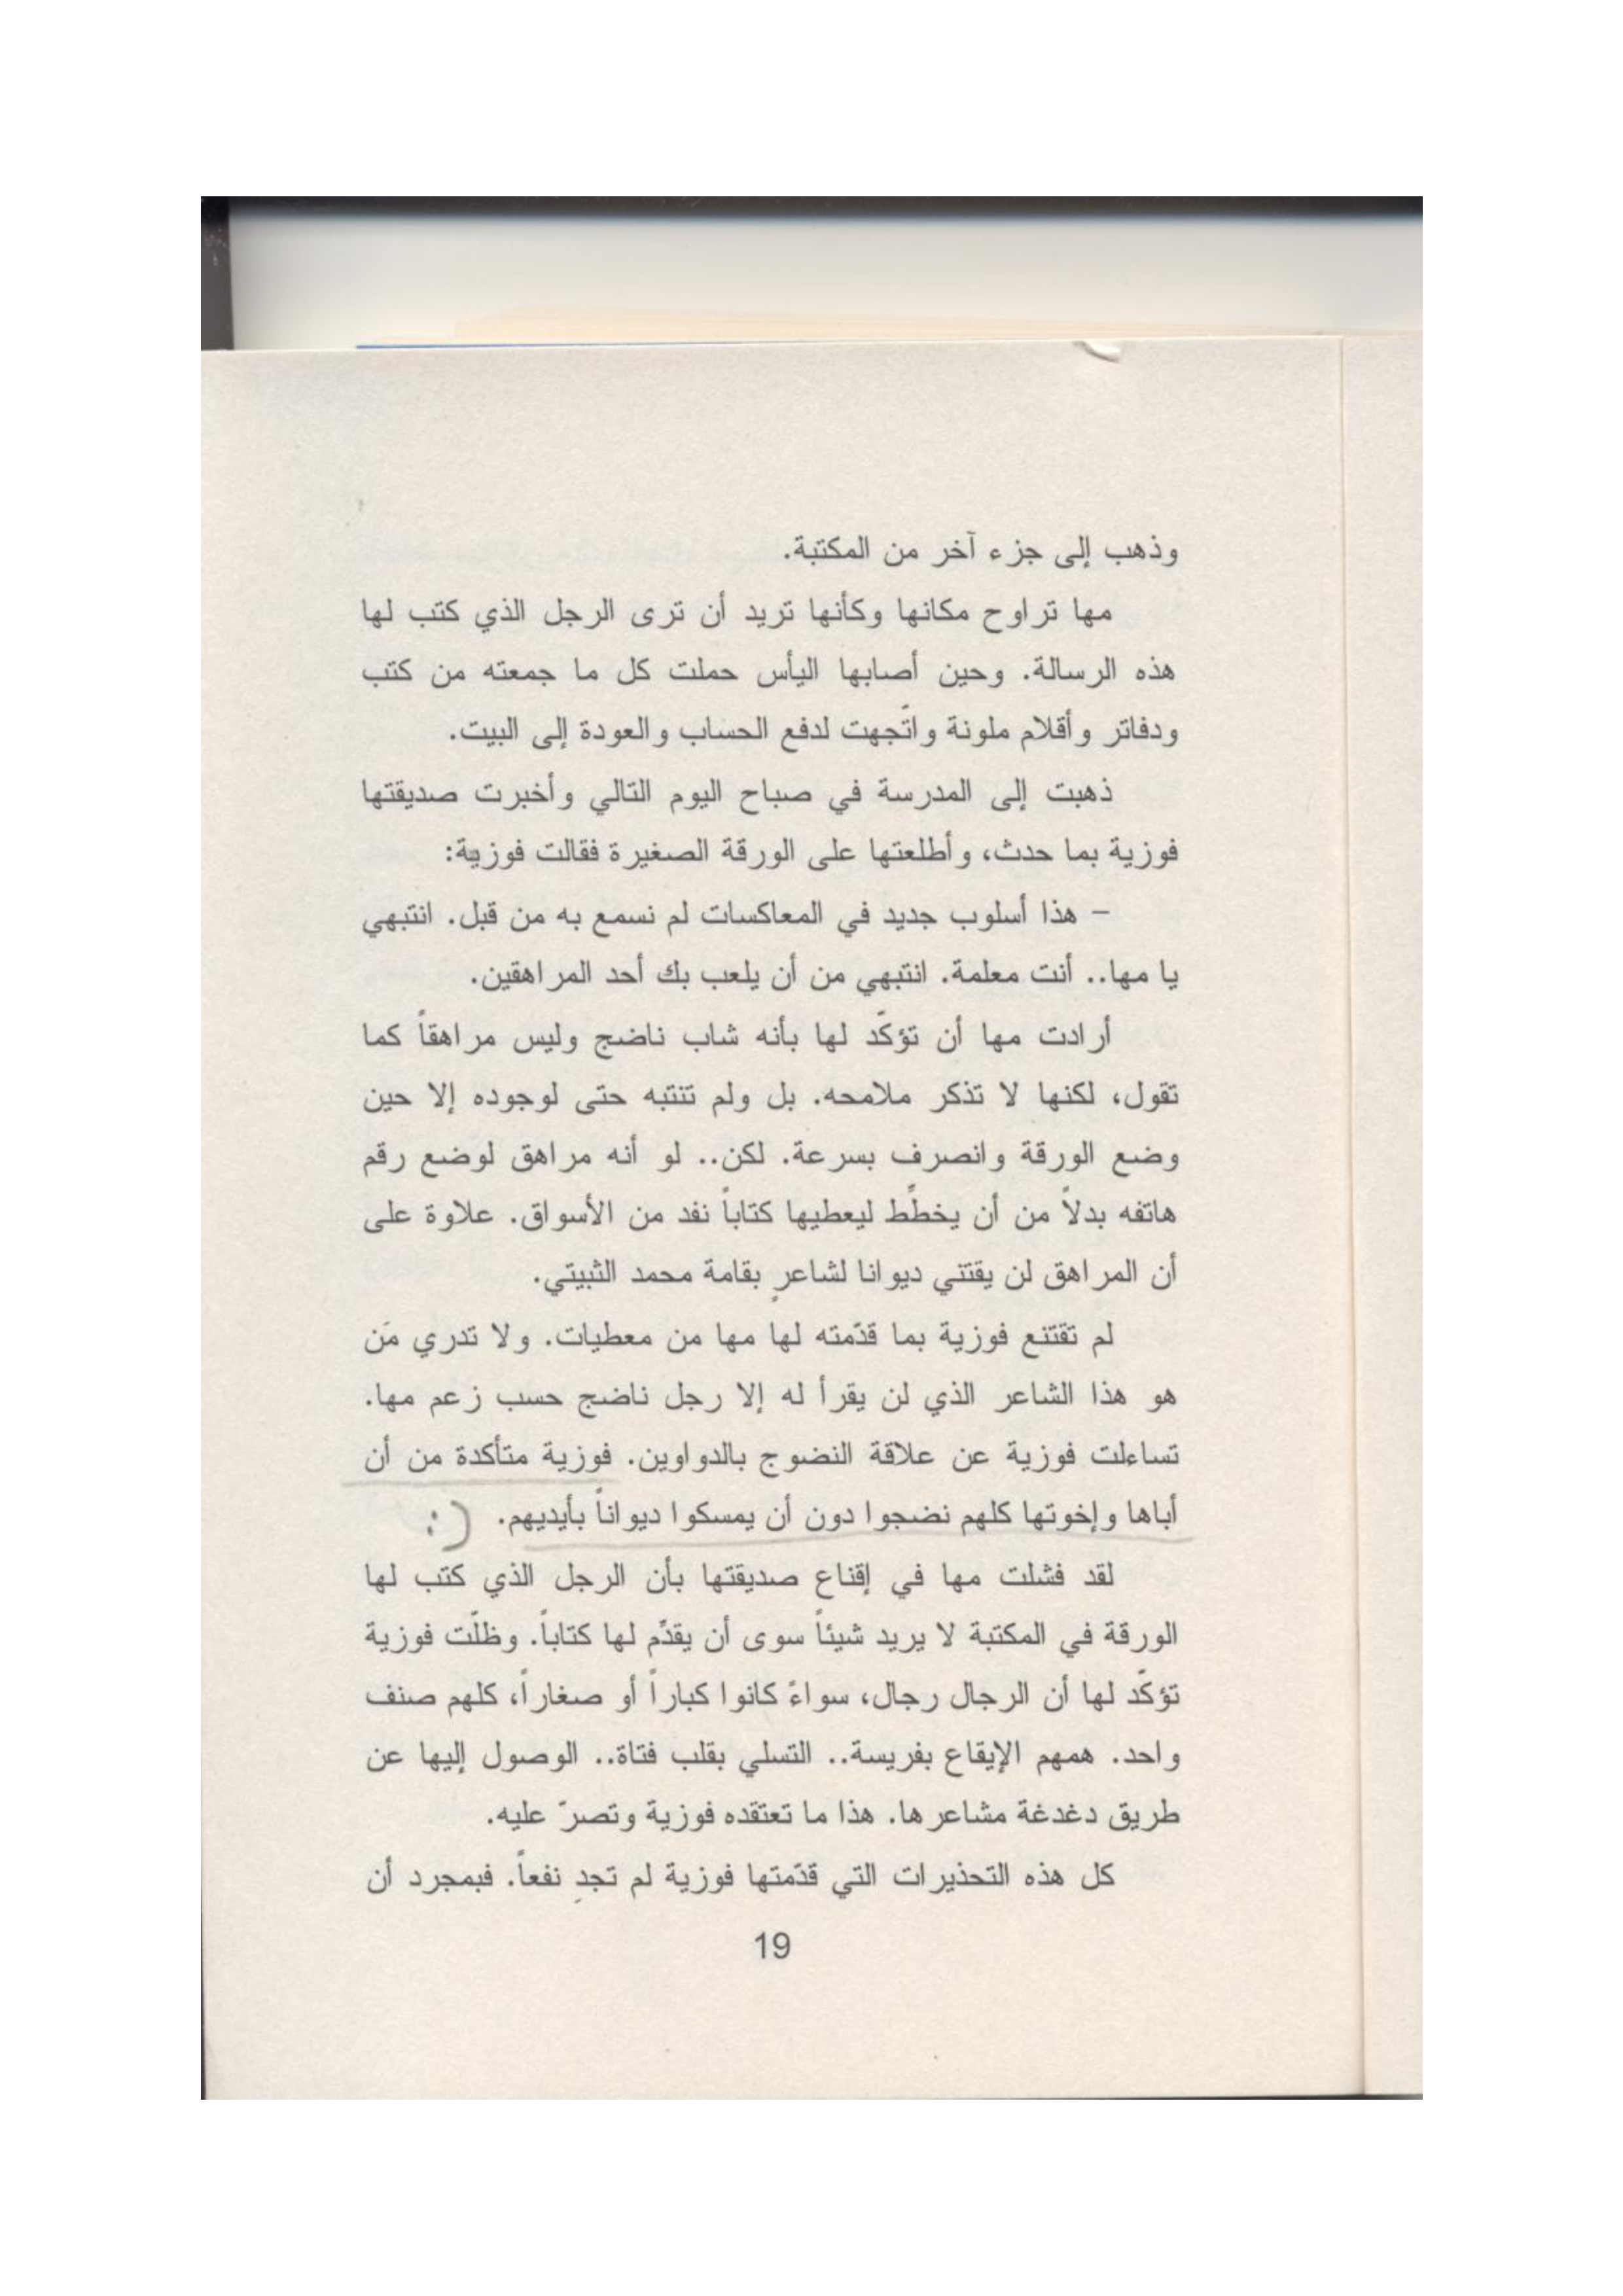 وذهب إلى جزء آخر من المكتبة.
مها تراوح مكانها وكأنها تريد أن ترى الرجل الذي كتب لها
هذه الرسالة. وحين أصابها اليأس حملت كل ما جمعته من كتب
ودفاتر وأقلام ملونة واتّجهت لدفع الحساب والعودة إلى البيت.
ذهبت إلى المدرسة في صباح اليوم التالي وأخبرت صديقتها
فوزية بما حدث، وأطلعتها على الورقة الصغيرة فقالت فوزية:
– هذا أسلوب جديد في المعاكسات لم نسمع به من قبل. انتبهي
يا مها.. أنت معلمة. انتبهي من أن يلعب بك أحد المراهقين.
أرادت مها أن تؤكّد لها بأنه شاب ناضج وليس مراهقاً كما
تقول، لكنها لا تذكر ملامحه. بل ولم تنتبه حتى لوجوده إلا حين
وضع الورقة وانصرف بسرعة. لكن.. لو أنه مراهق لوضع رقم
هاتفه بدلاً من أن يخطّط ليعطيها كتاباً نفد من الأسواق. علاوة على
أن المراهق لن يقتني ديوانا لشاعرٍ بقامة محمد الثبيتي.
لم تقتنع فوزية بما قدّمته لها مها من معطيات. ولا تدري مَن
هو هذا الشاعر الذي لن يقرأ له إلا رجل ناضج حسب زعم مها.
تساءلت فوزية عن علاقة النضوج بالدواوين. فوزية متأكدة من أن
أباها وإخوتها كلهم نضجوا دون أن يمسكوا ديواناً بأيديهم. :)
لقد فشلت مها في إقناع صديقتها بأن الرجل الذي كتب لها
الورقة في المكتبة لا يريد شيئاً سوى أن يقدّم لها كتاباً. وظلّت فوزية
تؤكّد لها أن الرجال رجال، سواءً كانوا كباراً أو صغاراً، كلهم صنف
واحد. همهم الإيقاع بفريسة.. التسلي بقلب فتاة.. الوصول إليها عن
طريق دغدغة مشاعرها. هذا ما تعتقده فوزية وتصرّ عليه.
كل هذه التحذيرات التي قدّمتها فوزية لم تجدِ نفعاً. فبمجرد أن
19